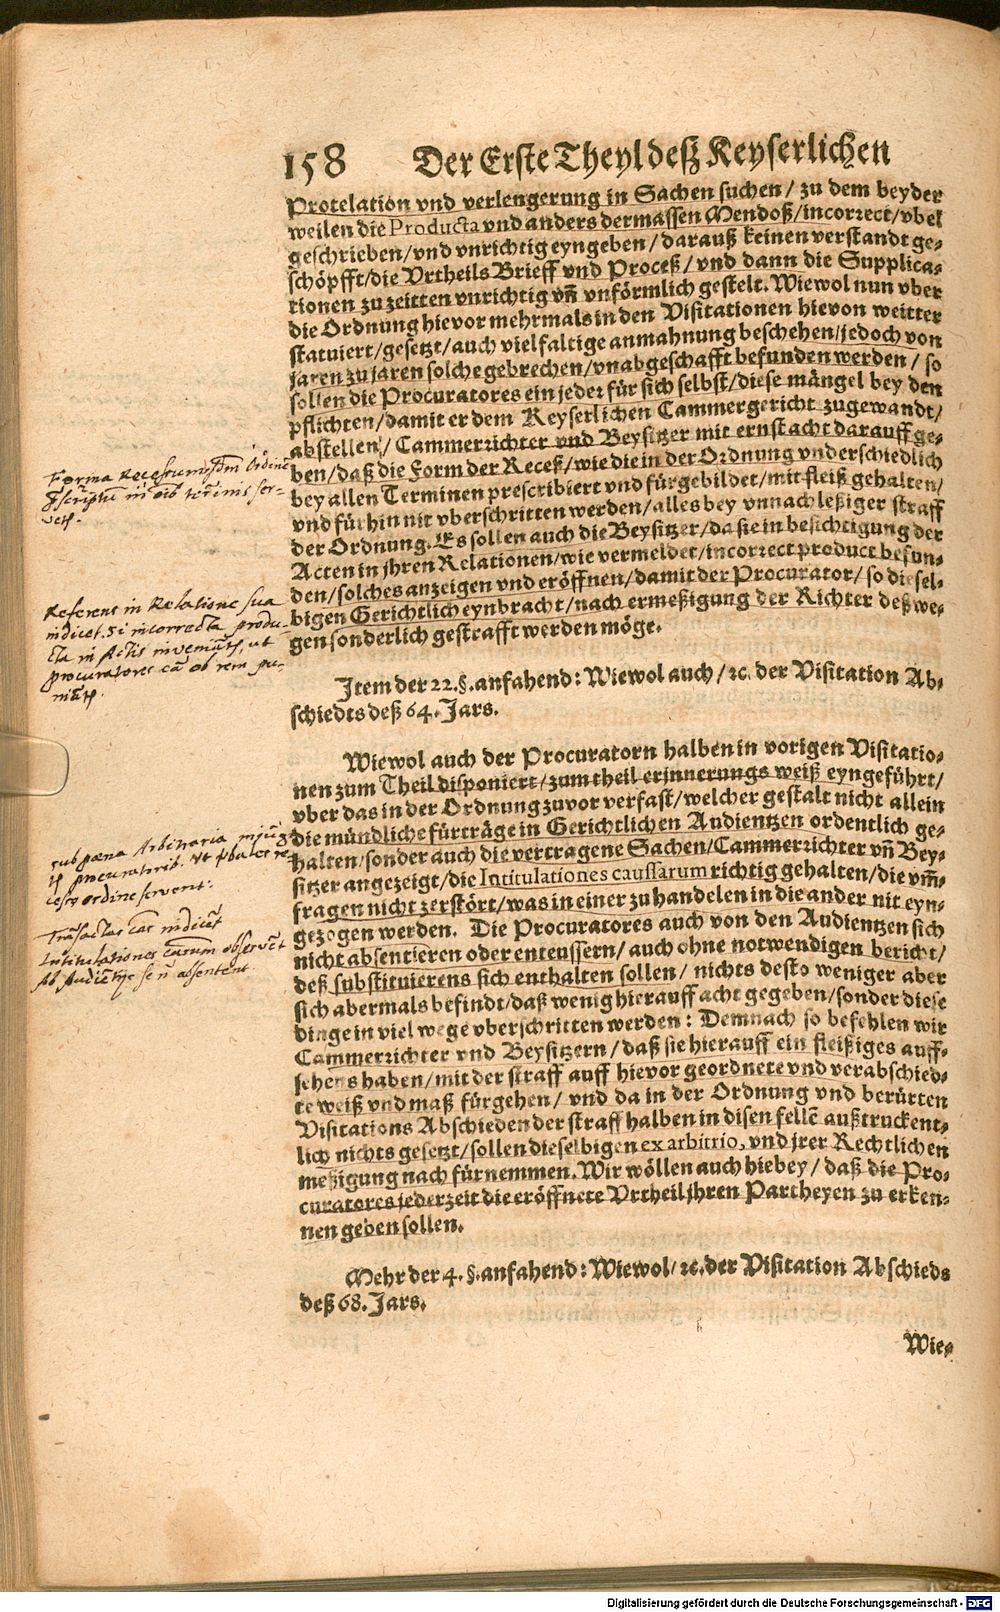 158 Der Erste Theyl deß Keyserlichen
Protelation vnd verlengerung in Sachen suchen / zu dem beyder
weilen die Producta vnd anders dermassen Mendoß/incorrect/vbel
geschrieben/vnd vnrichtig eyngeben/darauß keinen verstandt ge-
schöpfft/die Vrtheils Brieff vnd Proceß/vnd dann die Supplica-
tionen zu zeitten vnrichtig vñ vnförmlich gestelt. Wiewol nun vber
die Ordnung hievor mehrmals in den Visitationen hievon weitter
statuiert/gesetzt/auch vielfaltige anmahnung beschehen/jedoch von
jaren zu jaren solche gebrechen/vnabgeschafft befunden werden / so
sollen die Procuratores ein jeder für sich selbst/diese mängel bey den
pflichten/damit er dem Keyserlichen Cammergericht zugewandt/
abstellen/ Cammerrichter vnd Beysitzer mit ernst acht darauff ge-
ben/daß die Form der Receß/wie die in der Ordnung vnderschiedlich
bey allen Terminen prescribiert vnd fürgebildet/mit fleiß gehalten/
vnd fürhin nit vberschritten werden/alles bey vnnachleßiger straff
der Ordnung. Es sollen auch die Beysitzer/da sie in besichtigung der
Acten in jhren Relationen/wie vermeldet/incorrect product befun-
den/solches anzeigen vnd eröffnen/damit der Procurator/ so die sel-
bigen Gerichtlich eynbracht/nach ermeßigung der Richter deßwe-
gen sonderlich gestrafft werden möge.
Forma Recessuum ordine
in terminis ser-
Referens in Relatione sua
indicet, si incorrecta produ-
cta in Actis
procuratores ob rem pu-
Item der 22.§.anfahend: Wiewol auch / ꝛc. der Visitation Ab-
schiedts deß 64. Jars.
Wiewol auch der Procuratorn halben in vorigen Visitatio-
nen zum Theil disponiert/zum theil erjnnerungs weiß eyngeführt/
vber das in der Ordnung zuvor verfast/welcher gestalt nicht allein
die mündliche fürträge in Gerichtlichen Audientzen ordentlich ge-
halten/sonder auch die vertragene Sachen/Cammerrichter vñ Bey-
sitzer angezeigt/die Intitulationes caussarum richtig gehalten/die vm̃-
fragen nicht zerstört/was in einer zu handelen in die ander nit eyn-
gezogen werden. Die Procuratores auch von den Audientzen sich
nicht absentieren oder enteussern/ auch ohne notwendigen bericht/
deß substituierens sich enthalten sollen / nichts desto weniger aber
sich abermals befindt/daß wenig hierauff acht gegeben/sonder diese
dinge in viel wege vberschritten werden: Demnach so befehlen wir
Cammerrichter vnd Beysitzern/daß sie hierauff ein fleißiges auff-
sehens haben/mit der straff auff hievor geordnete vnd verabschied-
te weiß vnd maß fürgehen/ vnd da in der Ordnung vnd berürten
Visitations Abschieden der straff halben in disen fellē außtruckent-
lich nichts gesetzt/sollen dieselbigen ex arbitrio, vnd jrer Rechtlichen
meßigung nach fürnemmen. Wir wöllen auch hiebey/ daß die Pro-
curatores jederzeit die eröffnete Vrtheil jhren Partheyen zu erken-
nen geben sollen.
sub poena Arbitraria
procuratorib. vt
ordine servent.
Transactas indicent
Intitulationes observent
Ab se absentent
Mehr der 4.§.anfahend: Wiewol/ ꝛc. der Visitation Abschieds
deß 68. Jars.
Wie-
Digitalisierung gefördert durch die Deutsche Forschungsgemeinschaft - DFG